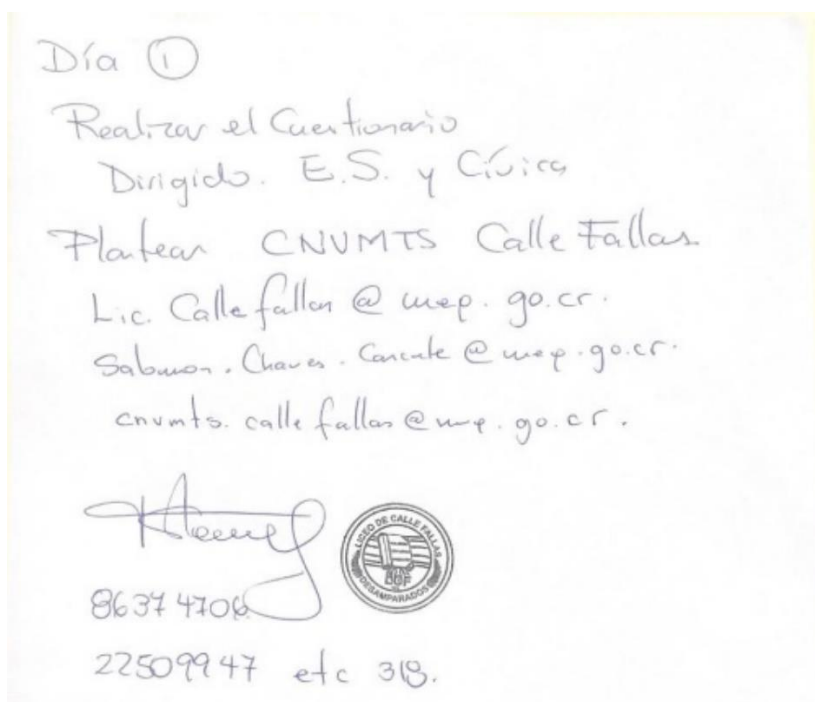 Día ①
Realizar el Cuestionario
Dirigido. E.S. y Cívica
Plantear CNVMTS Calle Fallas
Lic. Calle fallas @ mep. go.cr.
Salomon. Chaves. @ mep.go.cr.
cnvmts. calle fallas @ mep. go.cr.
LICEO DE CALLE FALLAS
DESAMPARADOS
8637 4706
22509947 etc 318.